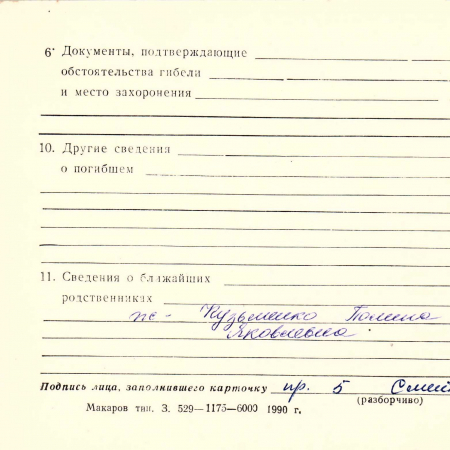 6· Документы, подтверждающие
обстоятельства гибели
и место захоронения
10. Другие сведения
о погибшем
11. Сведения о ближайших
родственниках
Кузьменко
Яковлевна
Подпись лица, заполнившего карточку пр. 5
(разборчиво)
Макаров тип. З. 529—1175—6000 1990 г.